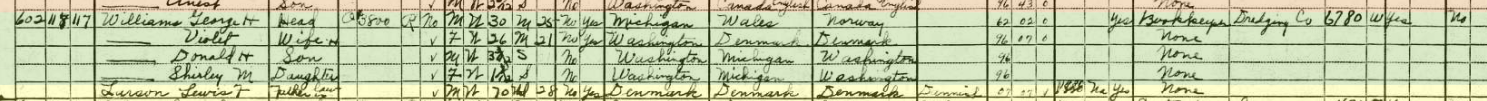 Son Washington Canada English Canada English 96 43 0 None
602 118 117 Williams George H Head O 3800 R No M W 30 M 25 No Yes Michigan Wales Norway 62 02 0 Yes Bookkeeper Dredging Co 6780 W Yes No
Violet Wife-H V F W 26 M 21 No Yes Washington Denmark Denmark 96 07 0 None
Donald H Son V M W S No Washington Michigan Washington 96 None
Shirley M Daughter V F W S No Washington Michigan Washington 96 None
Larson Lewis F Father in law V M W 70 28 No Yes Denmark Denmark Denmark Danish 07 07 1886 Na Yes None